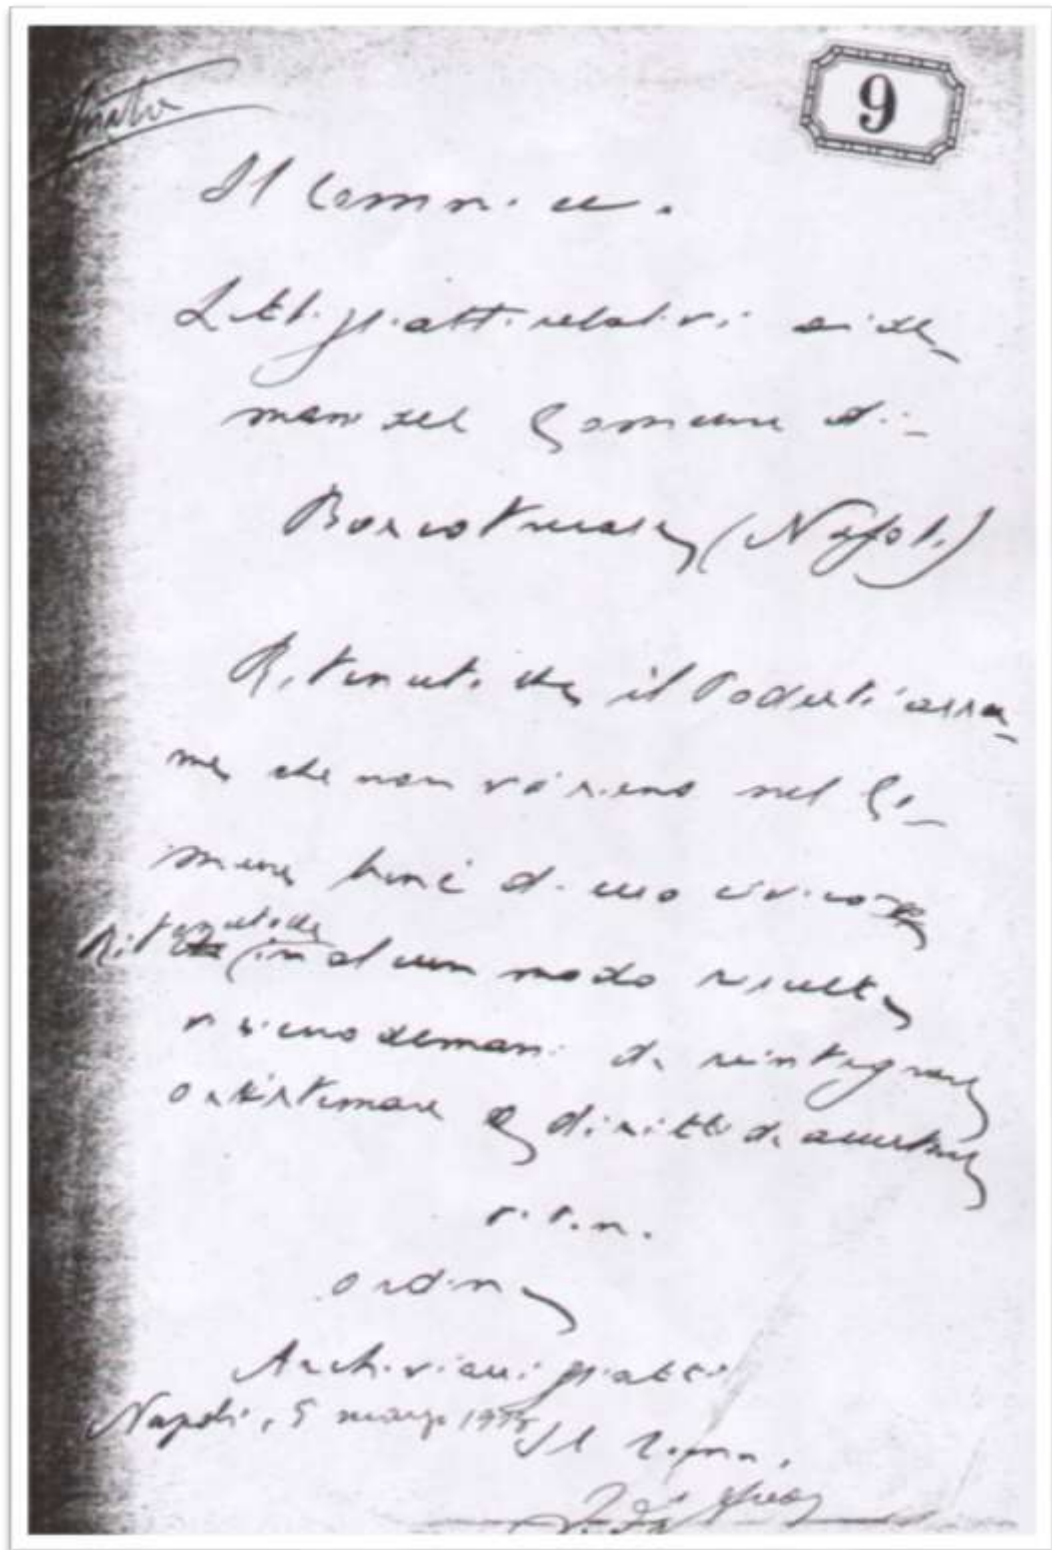 9
Il Comm.
Letti gli atti relativi ai de-
mani del Comune di
Boscotrecase (Napoli)
Ritenuto che il Podestà assu-
me che non vi siano nel Co-
mune terre di uso civico e
Ritenuto che in alcun modo risulta
vi siano demani da reintegrare
o sistemare e diritti da accertare
P. T. M.
Ordina
Archiviarsi gli atti
Napoli, 5 marzo
Il Comm.